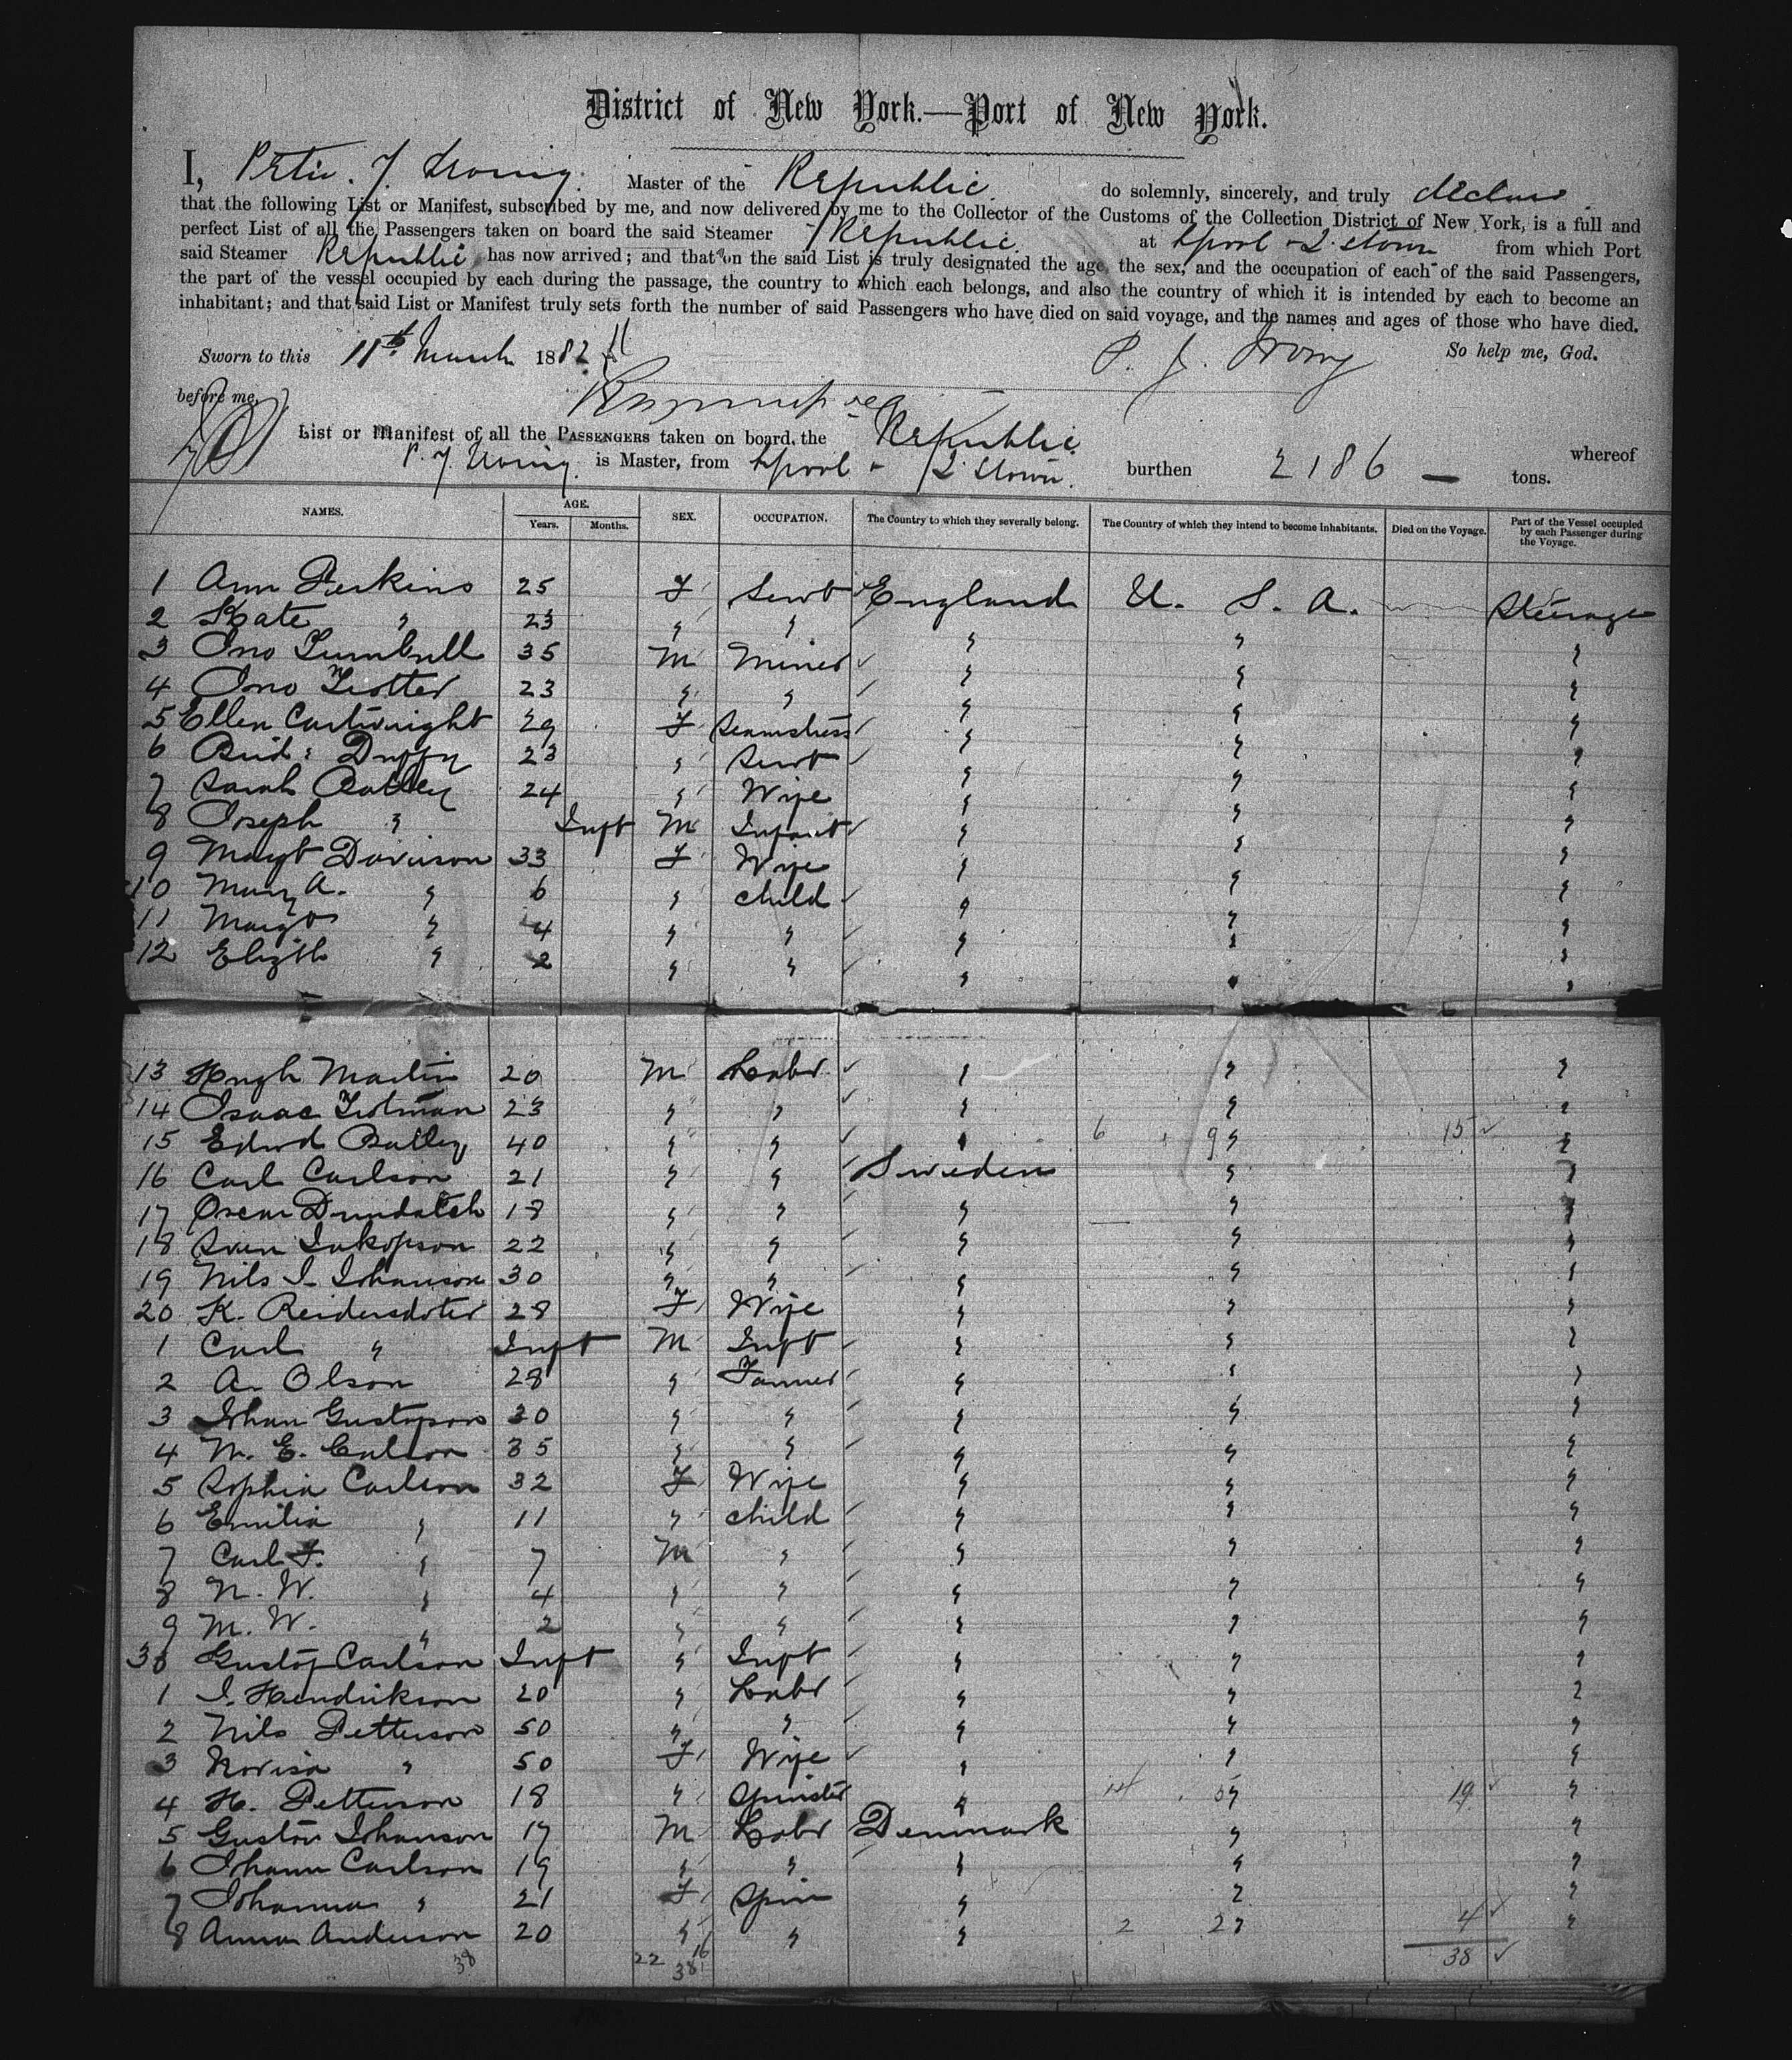 District of New York.—Port of New York.
I, Peter. J. Irving. Master of the Republic do solemnly, sincerely, and truly declare
that the following List or Manifest, subscribed by me, and now delivered by me to the Collector of the Customs of the Collection District of New York, is a full and
perfect List of all the Passengers taken on board the said Steamer Republic. at Lpool & Q. Town from which Port
said Steamer Republic has now arrived; and that on the said List is truly designated the age, the sex, and the occupation of each of the said Passengers,
the part of the vessel occupied by each during the passage, the country to which each belongs, and also the country of which it is intended by each to become an
inhabitant; and that said List or Manifest truly sets forth the number of said Passengers who have died on said voyage, and the names and ages of those who have died.
Sworn to this 11th March 1882 P. J. Irving So help me, God.
before me,
List or Manifest of all the PASSENGERS taken on board, the Republic whereof
P. J. Irving is Master, from Lpool & Q. Town. burthen 2186 — tons.
NAMES. AGE. Years. Months. SEX. OCCUPATION. The Country to which they severally belong. The Country of which they intend to become inhabitants. Died on the Voyage. Part of the Vessel occupied by each Passenger during the Voyage.
1 Ann Perkins 25 F Servt England U. S. A. Steerage
2 Kate " 23 " " " " "
3 Jno Turnbull 35 M Miner " " "
4 Jno Trotter 23 " " " " "
5 Ellen Cartwright 29 F Seamstress " " "
6 Brid: Duffy 23 " Servt " " "
7 Sarah Batley 24 " Wife " " "
8 Joseph " Inft M Infant " " "
9 Margt Davison 33 F Wife " " "
10 Mary A. " 6 " child " " "
11 Margt " 4 " " " " "
12 Elizth " 2 " " " " "
13 Hugh Martin 20 M Labr " " "
14 Isaac Trotman 23 " " " " "
15 Edwd Batley 40 " " " 6 9 " 15 "
16 Carl Carlson 21 " " Sweden " "
17 Oscar Dundatch 18 " " " " "
18 Sven Jakopson 22 " " " " "
19 Nils J. Johanson 30 " " " " "
20 K. Reidersdoter 28 F Wife " " "
1 Carl " Inft M Inft " " "
2 A. Olson 28 " Farmer " " "
3 Johan Gustafson 20 " " " " "
4 M. E. Calson 35 " " " " "
5 Sophia Carlson 32 F Wife " " "
6 Emilia " 11 " child " " "
7 Carl F. " 7 M " " " "
8 N. W. " 4 " " " " "
9 M. W. " 2 " " " " "
30 Gustof Carlson Inft " Inft " " "
1 J. Hendrikson 20 " Labr " " "
2 Nils Petterson 50 " " " " "
3 Lovisa " 50 F Wife " " "
4 H. Petterson 18 " Spinster " " 19 "
5 Gustav Johanson 17 M Labr Denmark " "
6 Johann Carlson 19 " " " " "
7 Johanna " 21 F Spin " " "
8 Anna Anderson 20 " " " 2 2 " 4 "
38 22 16 38 38